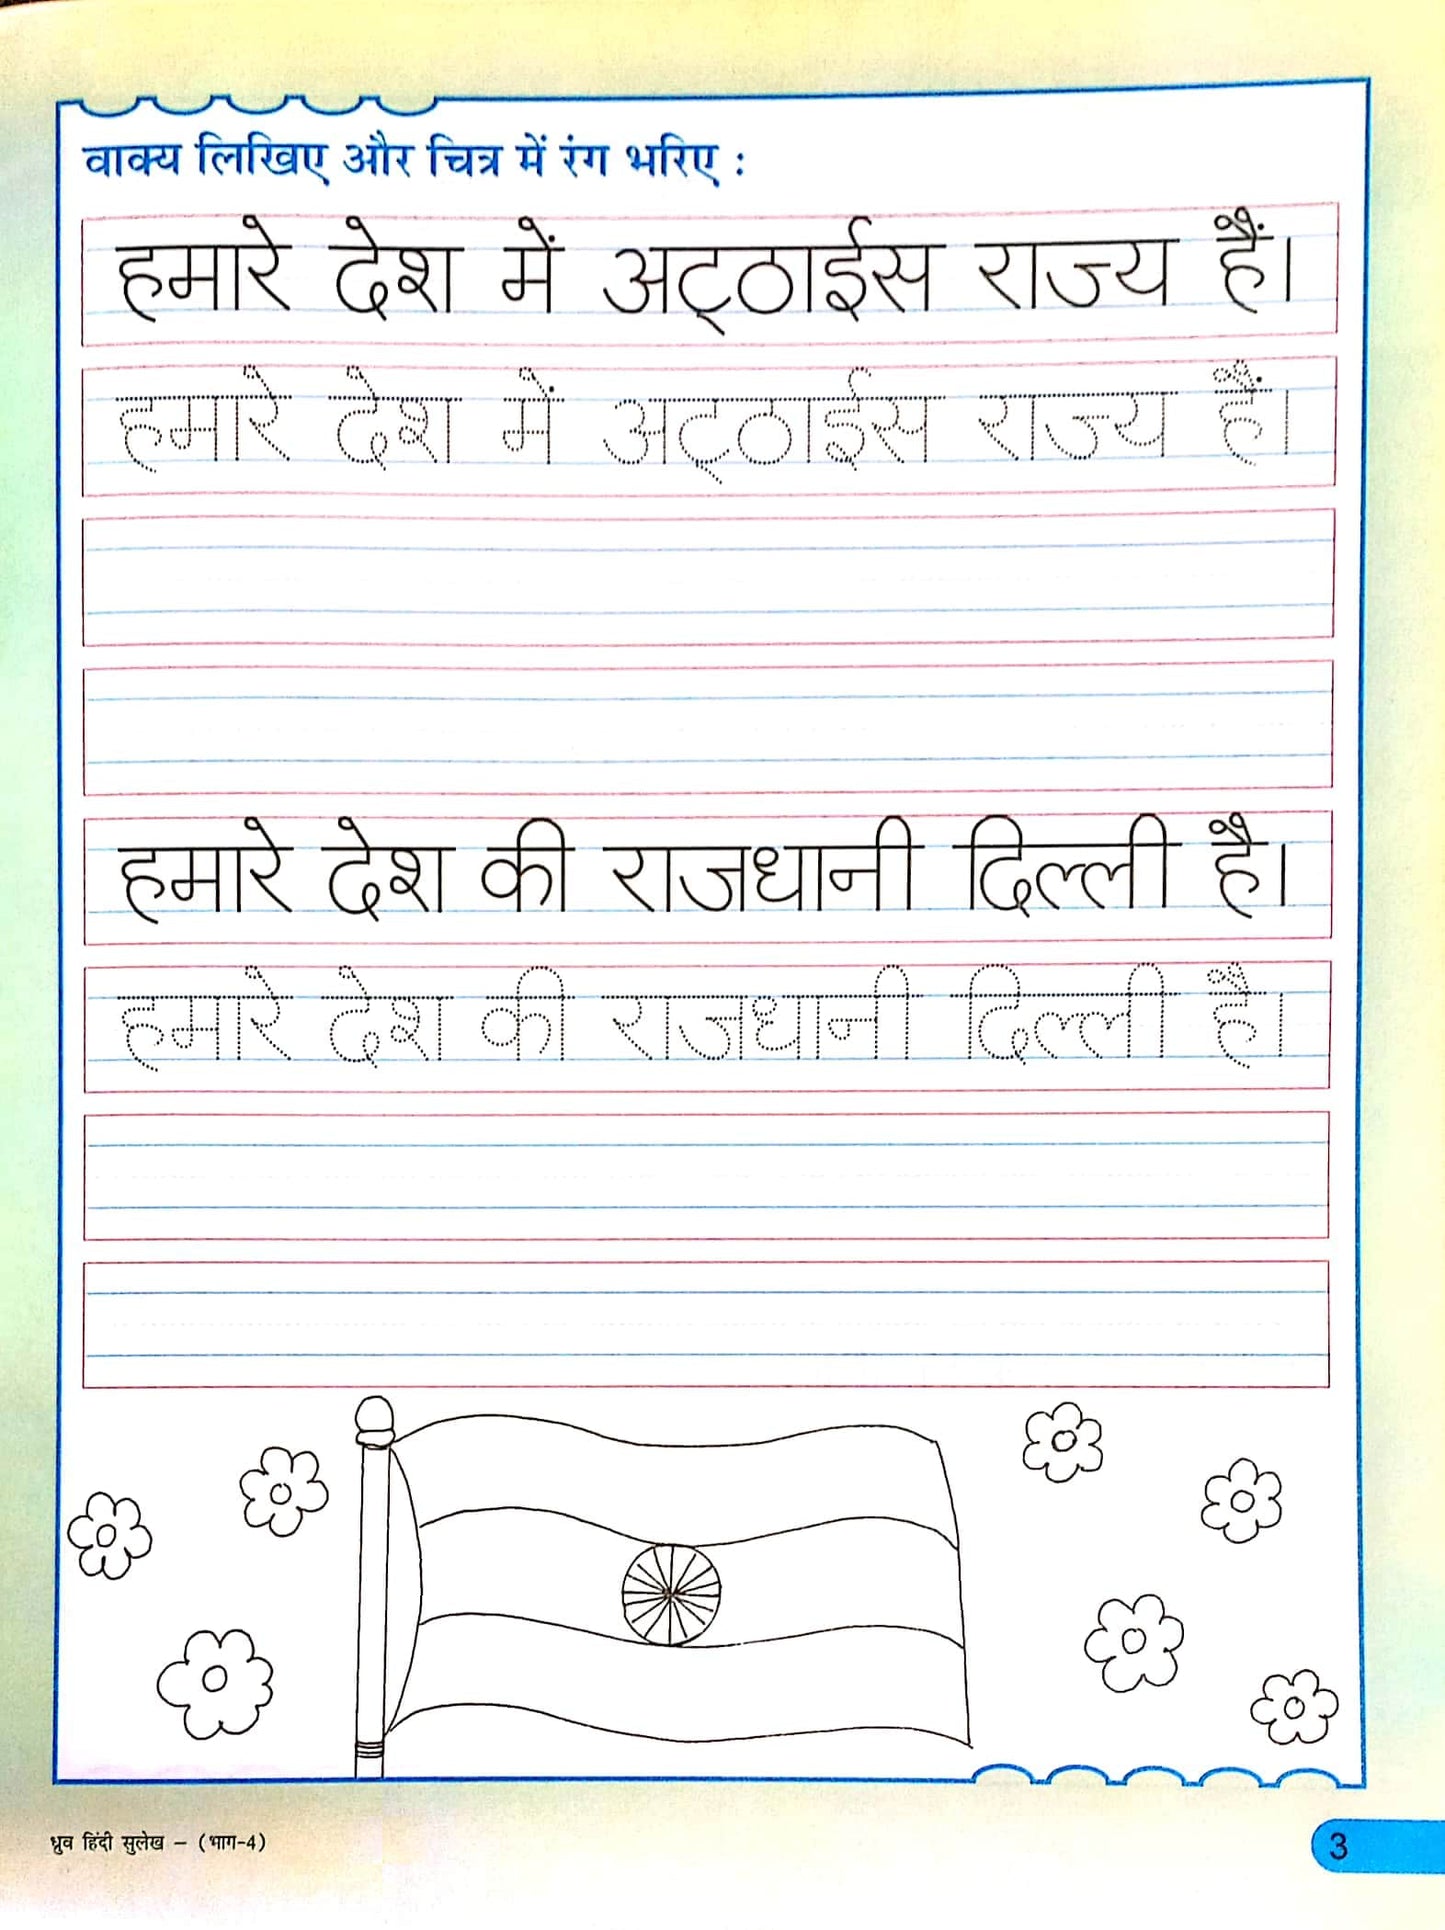 वाक्य लिखिए और चित्र में रंग भरिए :
हमारे देश में अट्ठाईस राज्य हैं।
हमारे देश में अट्ठाईस राज्य हैं।
हमारे देश की राजधानी दिल्ली है।
हमारे देश की राजधानी दिल्ली है।
ध्रुव हिंदी सुलेख – (भाग-4)
3